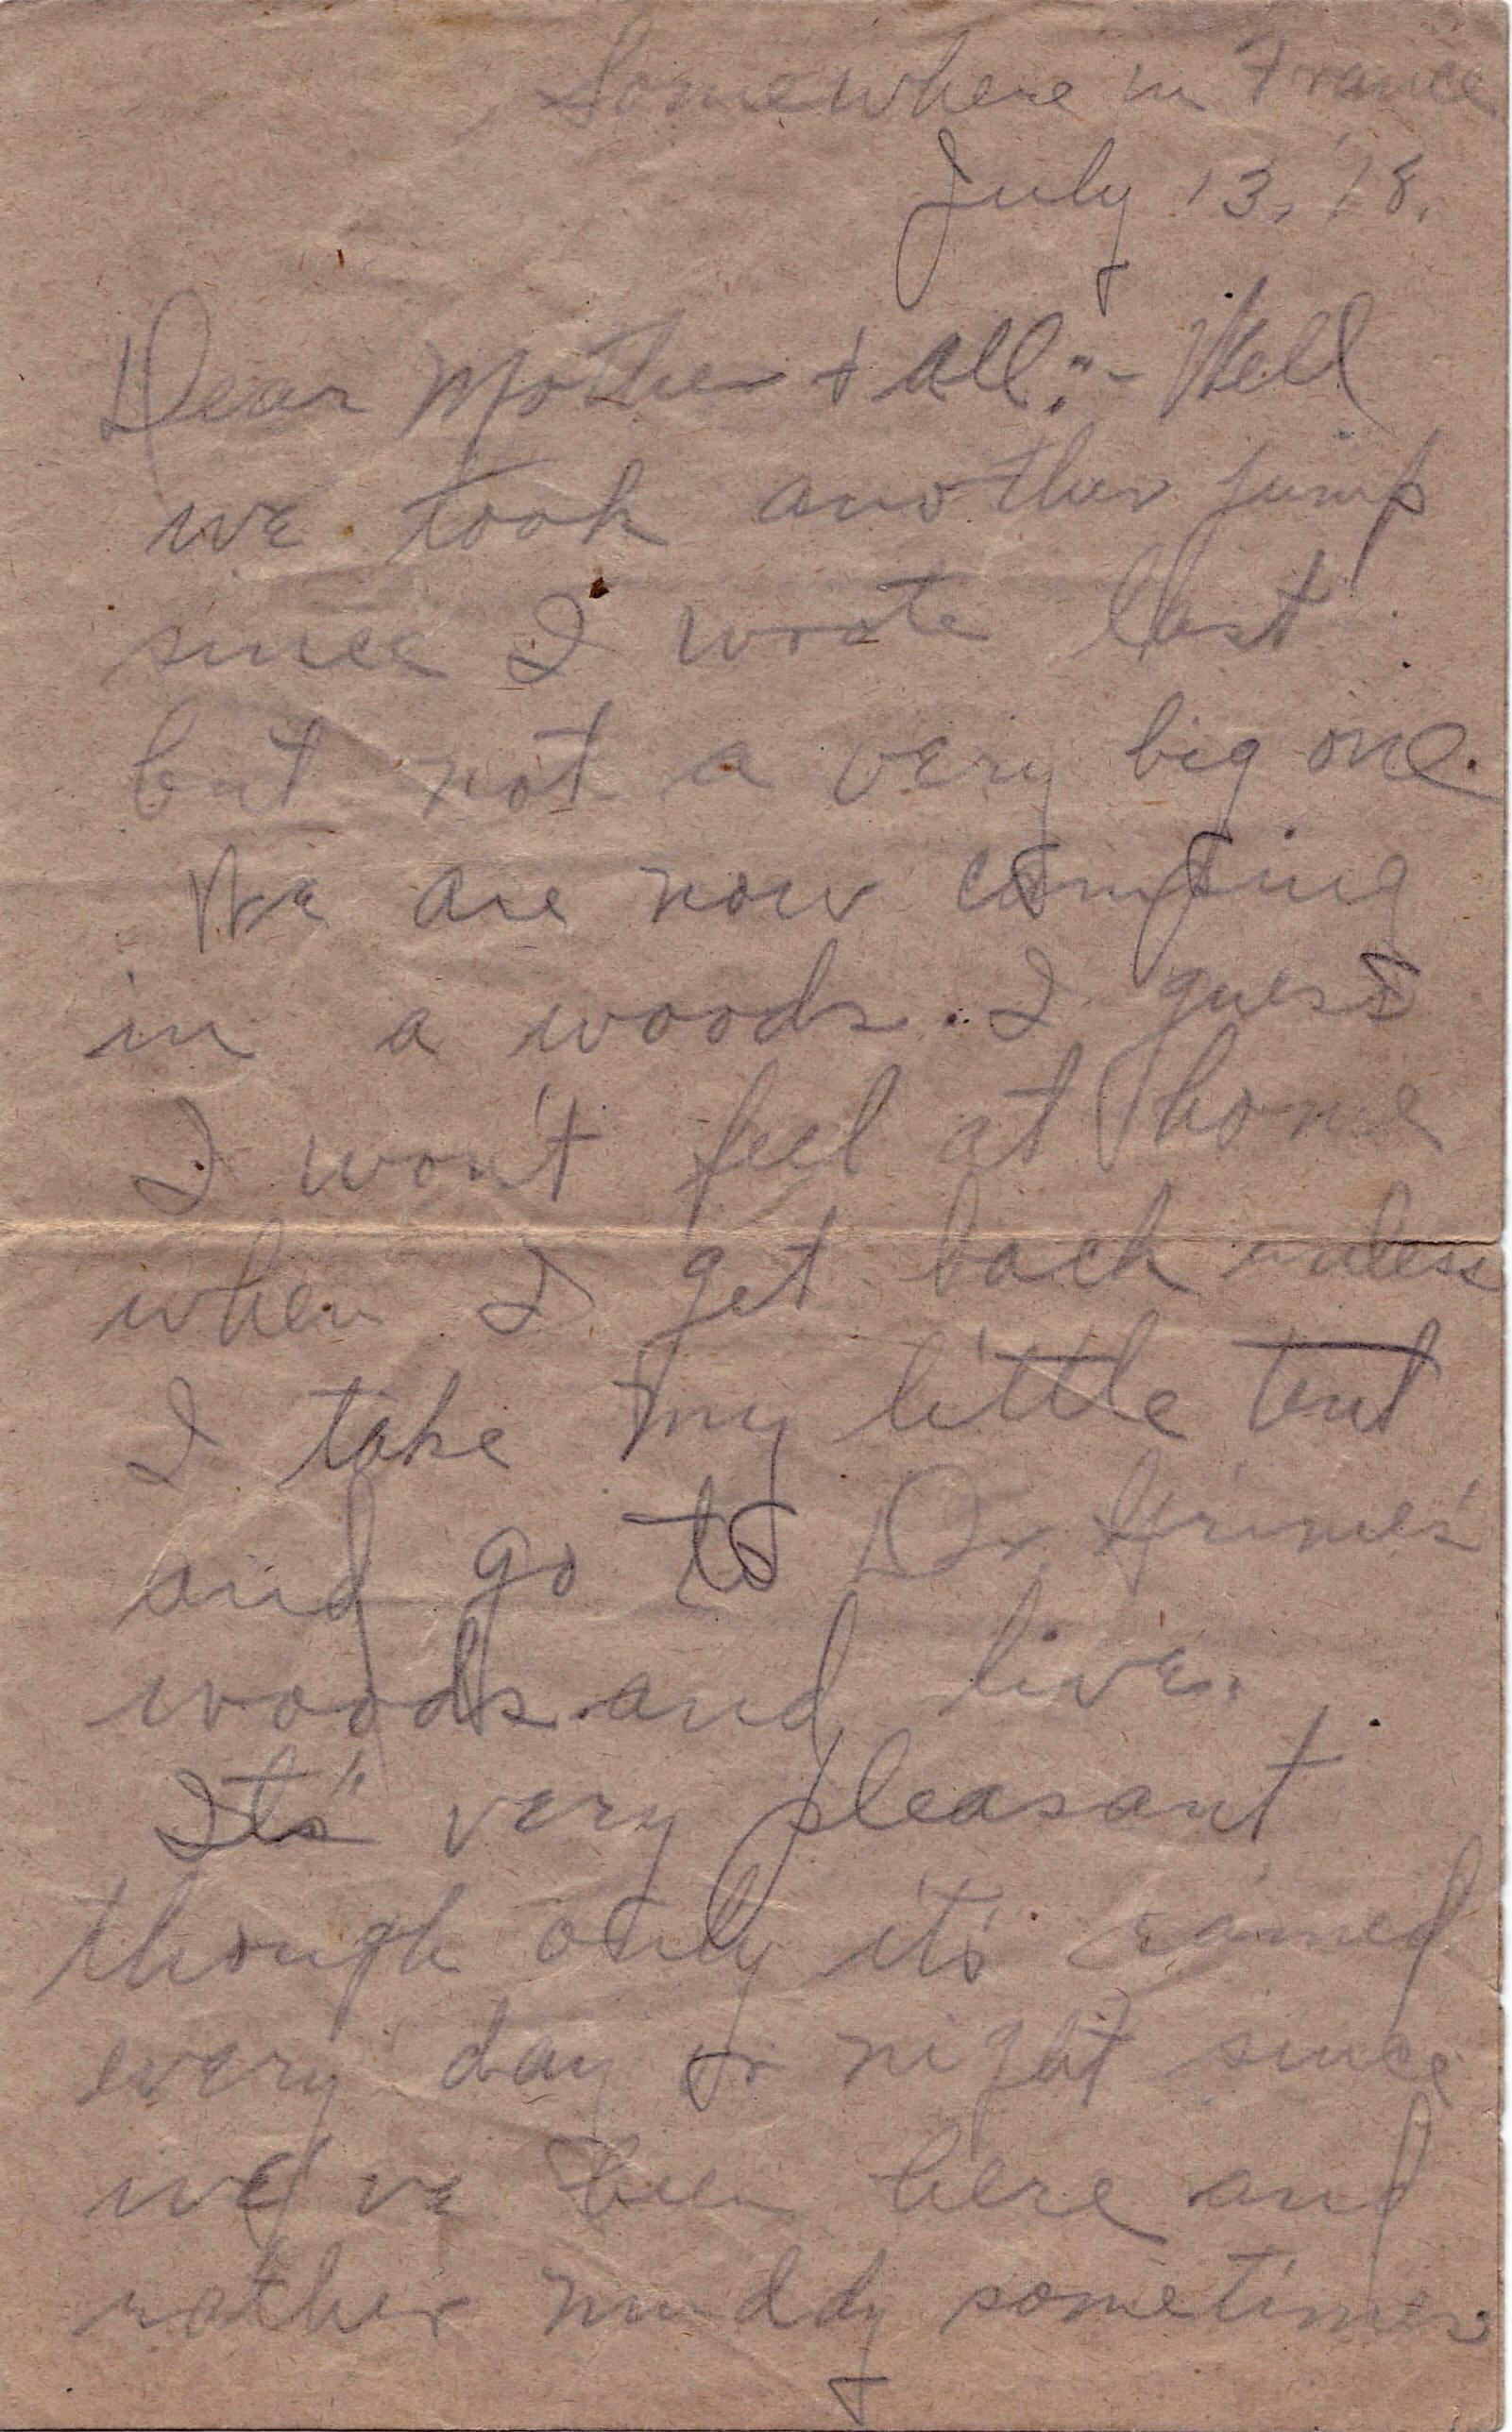 Somewhere in France
July 13, '18.
Dear Mother & all:- Well
we took another jump
since I wrote last
but not a very big one.
We are now camping
in a woods. I guess
I won't feel at home
when I get back unless
I take my little tent
and go to Dr Grimes'
woods and live.
It's very pleasant
though only it's rained
every day or night since
we've been here and
rather muddy sometimes